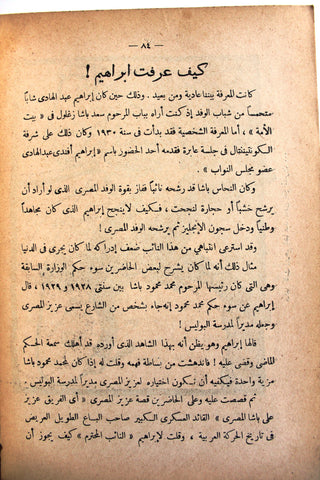 — ٨٤ —
كيف عرفت ابراهيم !
كانت المعرفة بيننا عادية ومن بعيد . وذلك حين كان إبراهيم عبد الهادى شابا
متحمساً من شباب الوفد إذ كنت أراه بباب المرحوم سعد باشا زغلول فى « بيت
الأمة » ، أما المعرفة الشخصية فقد بدأت فى سنة ١٩٣٠ وكان ذلك على شرفة
الكونتيننتال فى جلسة عابرة فقدمه أحد الحضور باسم « إبراهيم أفندى عبد الهادى
عضو مجلس النواب » .
وكان النحاس باشا قد رشحه نائباً ففاز بقوة الوفد المصرى الذى لو أراد أن
يرشح خشباً أو حجارة لنجحت ، فكيف لاينجح إبراهيم الذى كان مجاهداً
وطنياً ودخل سجون الإنجليز ثم يرشحه الوفد المصرى !
وقد استرعى انتباهي من هذا النائب ضعف إدراكه لما كان يجرى فى الدنيا
من أحداث ، ذلك أنه لما كان يشرح لبعض الحاضرين سوء حكم الوزارة السابقة
وهى التى كان رئيسها المرحوم محمد محمود باشا بين سنتى ١٩٢٨ و ١٩٢٩ ، قال
إبراهيم عن سوء حكم محمد محمود إنه جاء بشخص من الشارع يسمى عزيز المصرى
وجعله مديراً لمدرسة البوليس .
قالها إبراهيم وهو يظن أنه بهذا الشاهد الذى أورده قد أهلك سمعة الحكم
الماضى وقضى عليه ! فاندهشت من بساطة فهمه وقلت له إذا لم يكن لمحمد محمود باشا
مزية واحدة فيكفيه أن تكون اختياره لعزيز المصرى مديراً لمدرسة البوليس .
ثم قصصت عليه وعلى الحاضرين قصة عزيز المصرى « أى الفريق عزيز
على باشا المصرى » القائد العسكرى الكبير صاحب الباع الطويل العريض
فى تاريخ الحركة العربية ، وقلت لإبراهيم « النائب المحترم » كيف يجوز أن